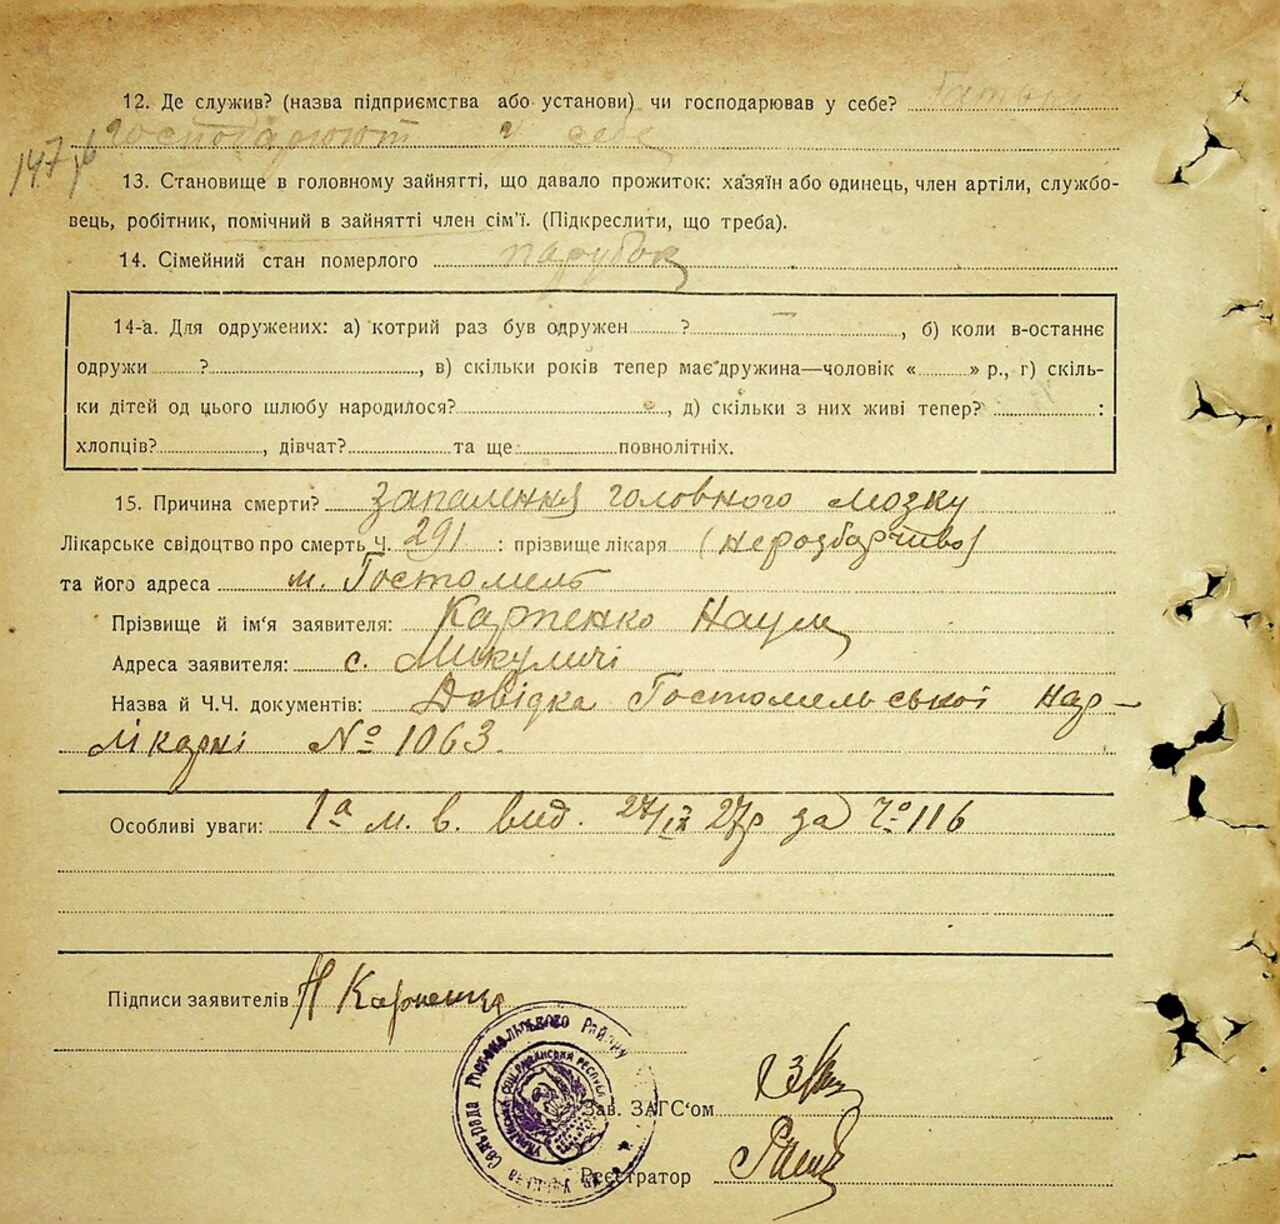 12. Де служив? (назва підприємства або установи) чи господарював у себе?
господарюют у себе
147
13. Становище в головному зайнятті, що давало прожиток: хазяїн або одинець, член артіли, службо-
вець, робітник, помічний в зайнятті член сім'ї. (Підкреслити, що треба).
14. Сімейний стан померлого парубок
14-а. Для одружених: а) котрий раз був одружен ? —, б) коли в-останнє
одружи ?, в) скільки років тепер має дружина—чоловік « » р., г) скіль-
ки дітей од цього шлюбу народилося?, д) скільки з них живі тепер? :
хлопців?, дівчат? та ще повнолітніх.
15. Причина смерти? Запалення головного мозку
Лікарське свідоцтво про смерть Ч. 291 : прізвище лікаря (нерозбірчиво)
та його адреса м. Гостомель
Прізвище й ім'я заявителя: Карпенко Наум
Адреса заявителя: с. Микуличі
Назва й Ч.Ч. документів: Довідка Гостомельської нар-
лікарні № 1063.
Особливі уваги: 1а м. в. вид. 27/IX 27р за Ч° 116
Підписи заявителів Н Карпенко
Району
Зав. ЗАГС'ом
Реєстратор